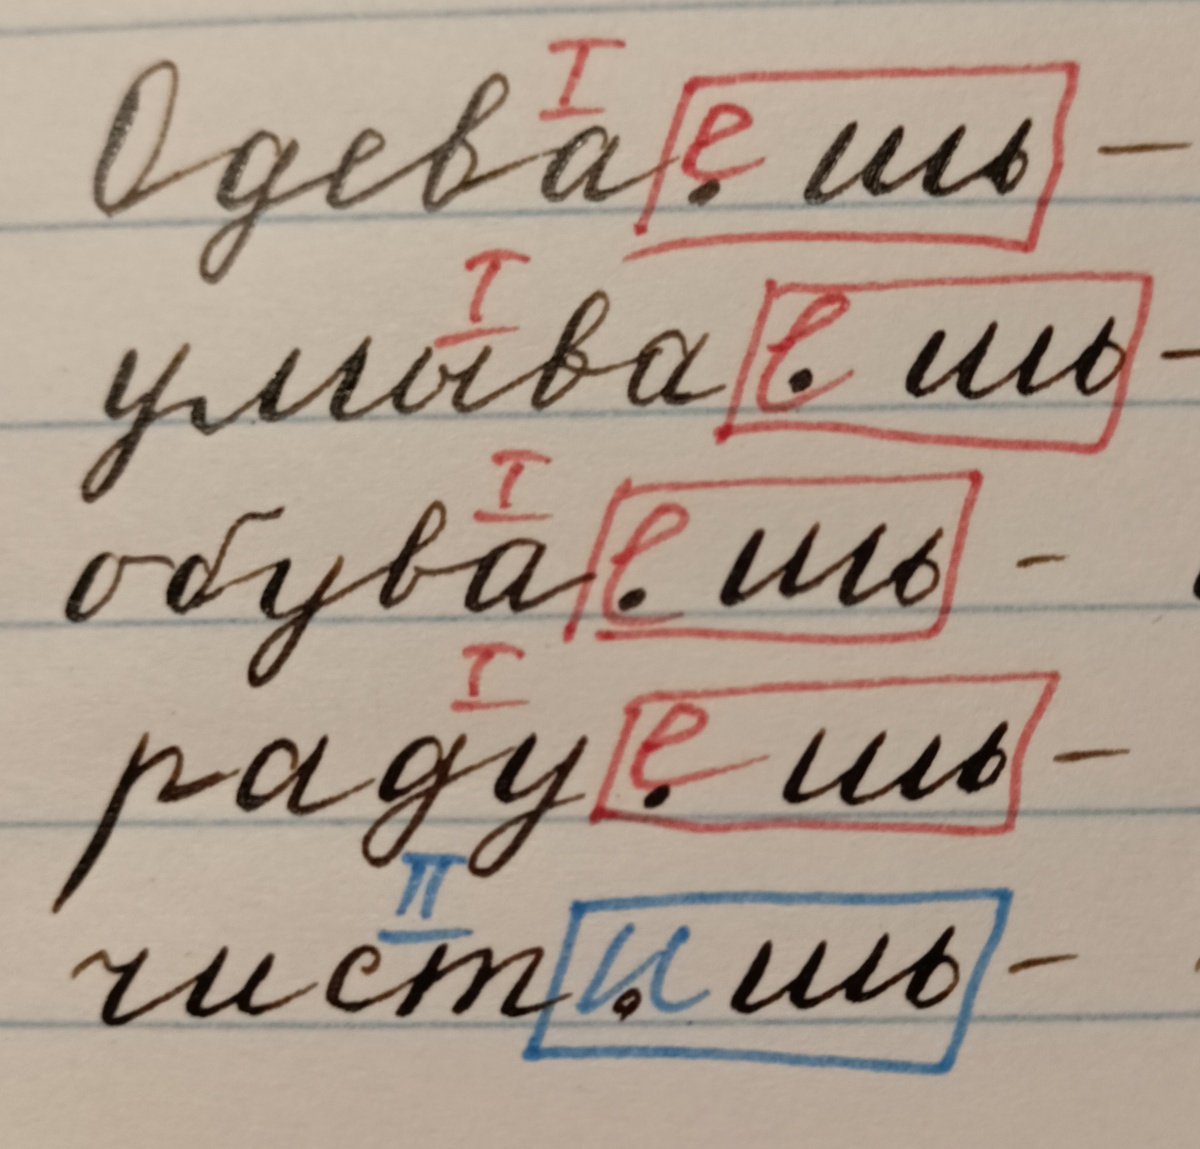 I
Одева[е.шь] –
I
умыва[е.шь] –
I
обува[е.шь] –
I
раду[е.шь] –
II
чист[и.шь] –